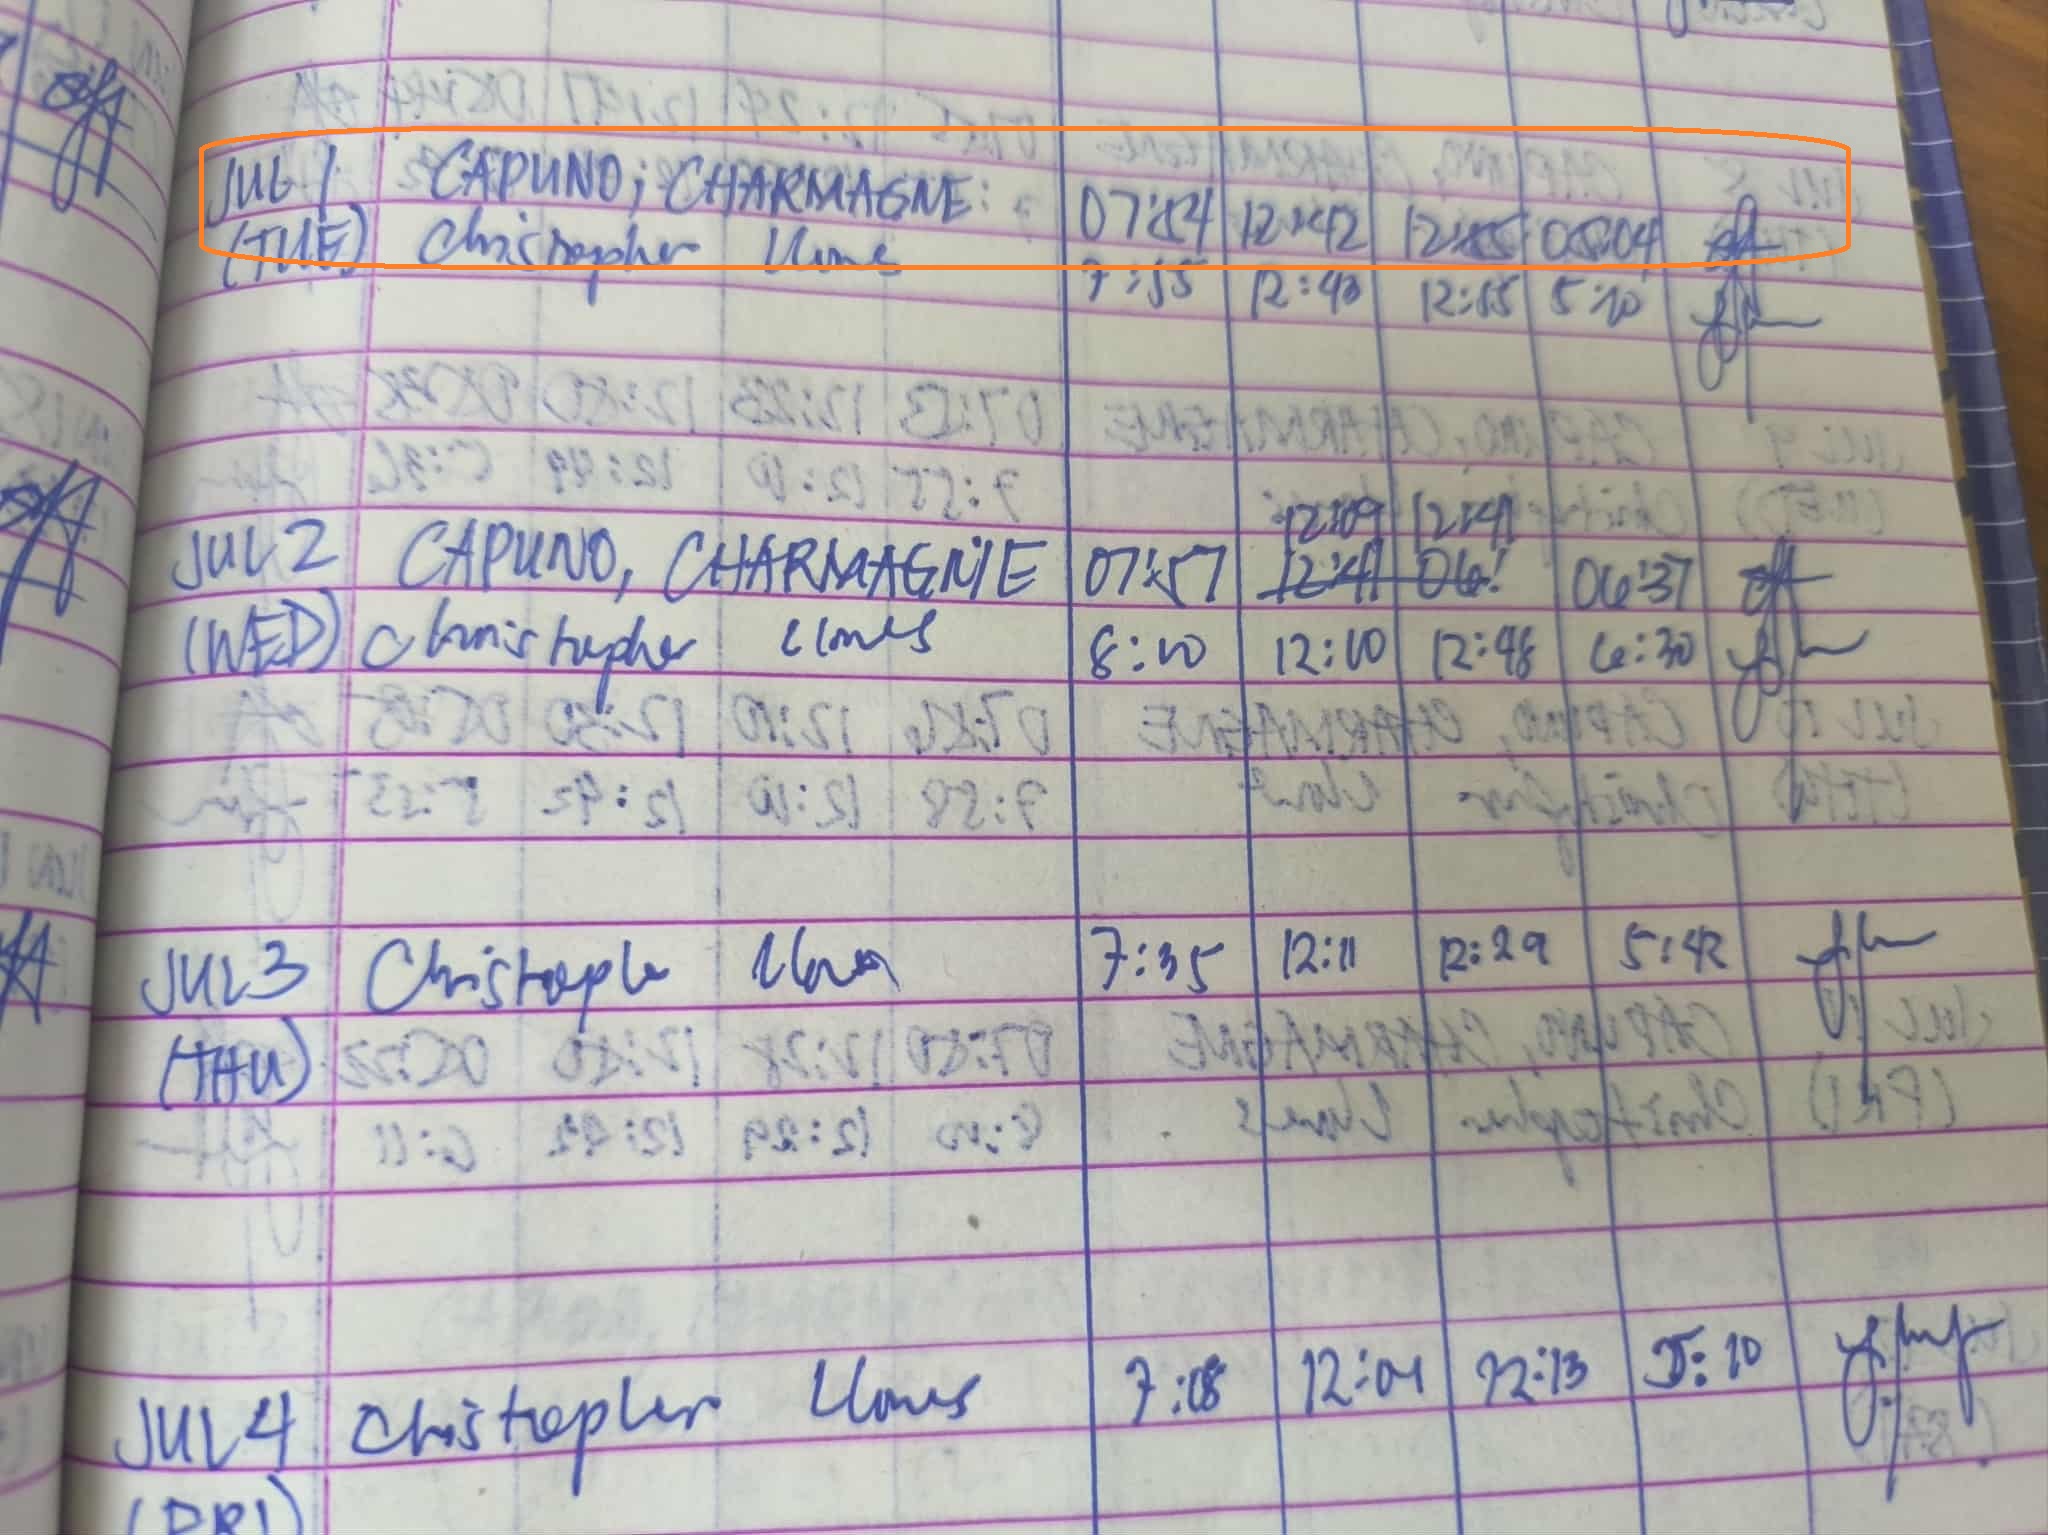 JUL 1 CAPUNO, CHARMAGNE 07:54 12:42 12:55 05:04
(TUE) Christopher Llones 7:55 12:43 12:55 5:10
12:09 12:41
JUL 2 CAPUNO, CHARMAGNE 07:57 12:41 06: 06:37
(WED) Christopher Llones 8:10 12:10 12:48 6:30
JUL 3 Christopher Llones 7:35 12:11 12:29 5:42
(THU)
JUL 4 Christopher Llones 7:08 12:04 12:13 5:10
(FRI)